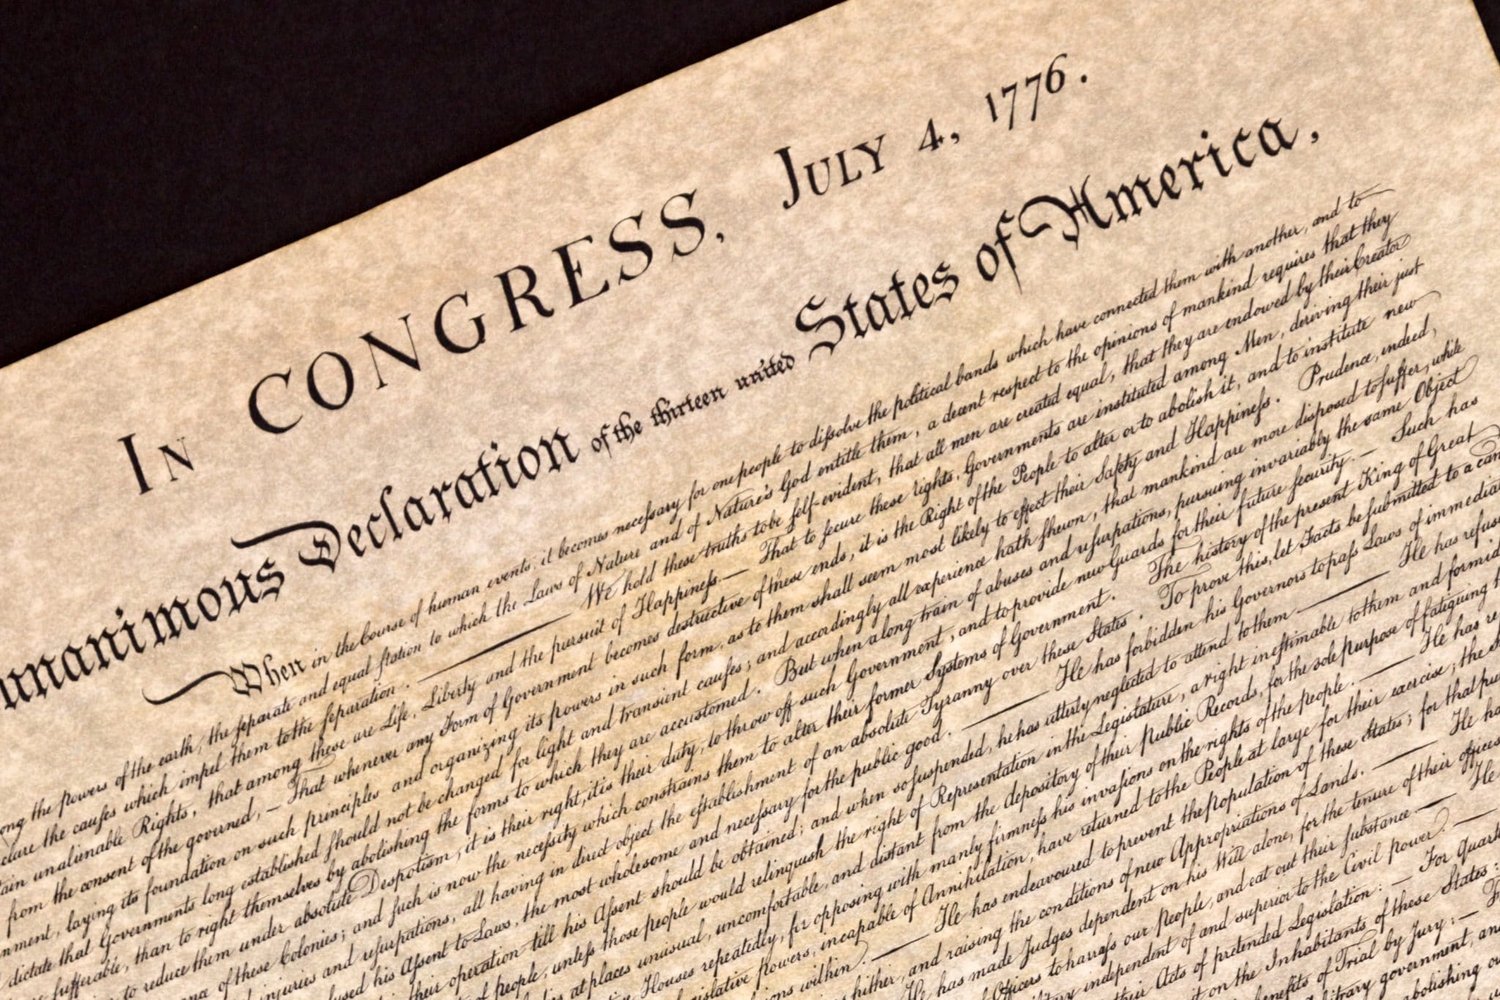 In CONGRESS, July 4, 1776.
unanimous Declaration of the thirteen united States of America,
When in the Course of human events, it becomes necessary for one people to dissolve the political bands which have connected them with another, and to
the powers of the earth, the separate and equal station to which the Laws of Nature and of Nature's God entitle them, a decent respect to the opinions of mankind requires that they
the causes which impel them to the separation. — We hold these truths to be self-evident, that all men are created equal, that they are endowed by their Creator
unalienable Rights, that among these are Life, Liberty and the pursuit of Happiness. — That to secure these rights, Governments are instituted among Men, deriving their just
from the consent of the governed, — That whenever any Form of Government becomes destructive of these ends, it is the Right of the People to alter or to abolish it, and to institute new
laying its foundation on such principles and organizing its powers in such form, as to them shall seem most likely to effect their Safety and Happiness. Prudence, indeed,
dictate that Governments long established should not be changed for light and transient causes; and accordingly all experience hath shewn, that mankind are more disposed to suffer, while
sufferable, than to right themselves by abolishing the forms to which they are accustomed. But when a long train of abuses and usurpations, pursuing invariably the same Object
to reduce them under absolute Despotism, it is their right, it is their duty, to throw off such Government, and to provide new Guards for their future security. — Such has
of these Colonies; and such is now the necessity which constrains them to alter their former Systems of Government. The history of the present King of Great
injuries and usurpations, all having in direct object the establishment of an absolute Tyranny over these States. To prove this, let Facts be submitted to a
his Assent to Laws, the most wholesome and necessary for the public good. — He has forbidden his Governors to pass Laws of
their operation till his Assent should be obtained; and when so suspended, he has utterly neglected to attend to them — He has
of people, unless those people would relinquish the right of Representation in the Legislature, a right inestimable to them and
at places unusual, uncomfortable, and distant from the depository of their Public Records, for the sole purpose of fatiguing
Houses repeatedly, for opposing with manly firmness his invasions on the rights of the people. — He has
Powers, incapable of Annihilation, have returned to the People at large for their exercise; the
within. — He has endeavoured to prevent the population of these States; for that
hither, and raising the conditions of new Appropriations of Lands. — He
He has made Judges dependent on his Will alone, for the tenure of their offices
Officers to harrass our People, and eat out their substance — He
independent of and superior to the Civil power. —
their Acts of pretended Legislation: — For
on the Inhabitants of these States:
benefits of Trial by Jury: —
government, and
abolishing